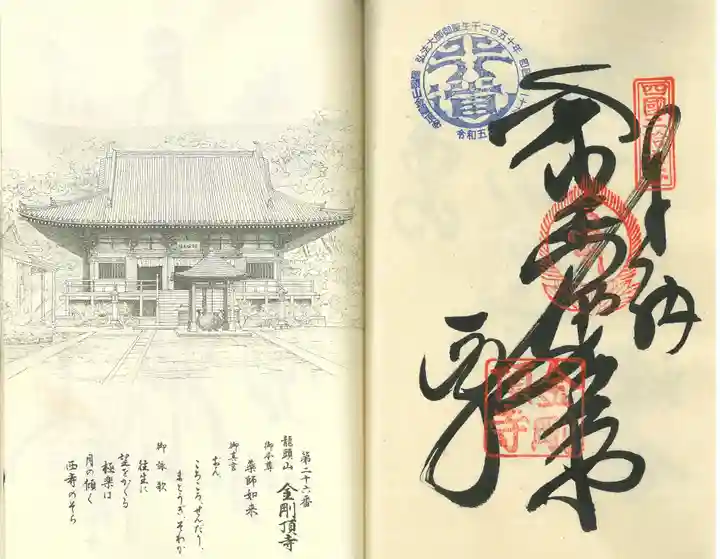 第二十六番
龍頭山 金剛頂寺
御本尊
薬師如来
御真言
おん
ころころ、せんだり、
まとうぎ、そわか
御詠歌
往生に
望をかくる
極楽は
月の傾く
西寺のそら
弘法大師御誕生千二百五十年
令和五
奉納
薬師如来
西寺
金剛
頂寺